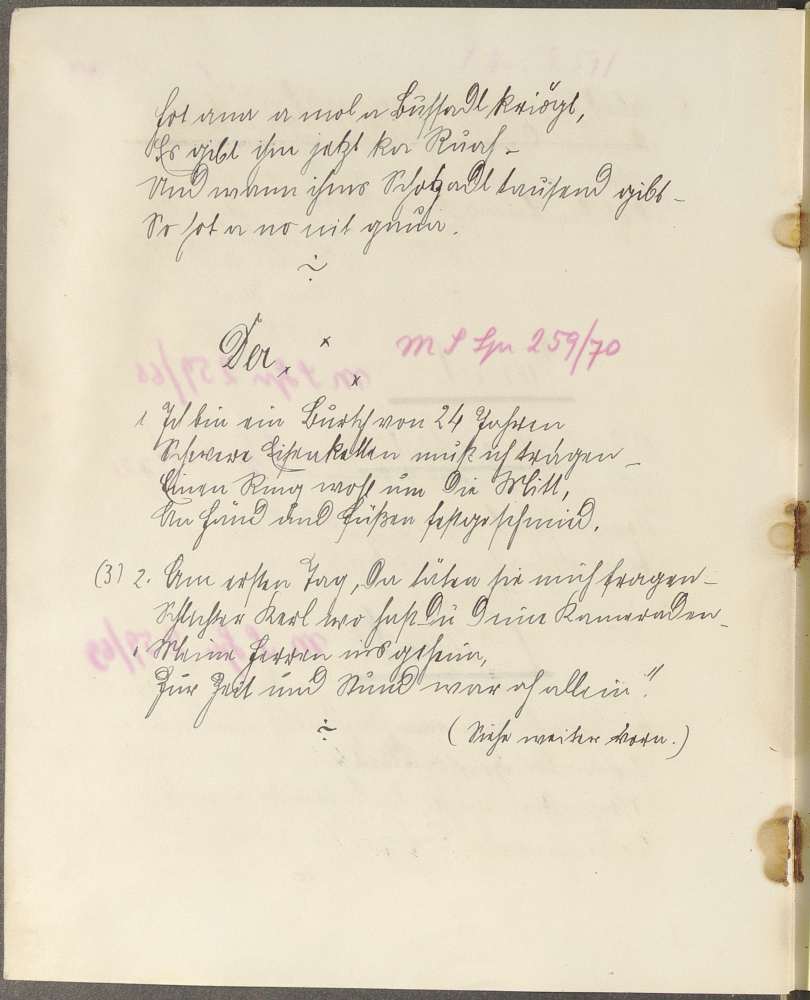 Hot ana a mol a Bussadl kriägt,
Es gibt ihm jetzt ka Ruah –
Und wann ihms Schatzadl tausend gibt –
So hot a no nit gnua.
Der
M S Spr 259/70
1 Ich bin ein Bursch von 24 Jahren
Schwere Eisenketten muß ich tragen –
Einen Ring wohl um die Mitt,
An Händ und Füßen festgeschmied.
(3) 2. Am ersten Tag, da täten sie mich fragen –
Schlechter Kerl wo hast Du Deine Kameraden –
„Meine Herren ins geheim,
Zur Zeit und Stund war ich allein".
(Siehe weiter vorn.)